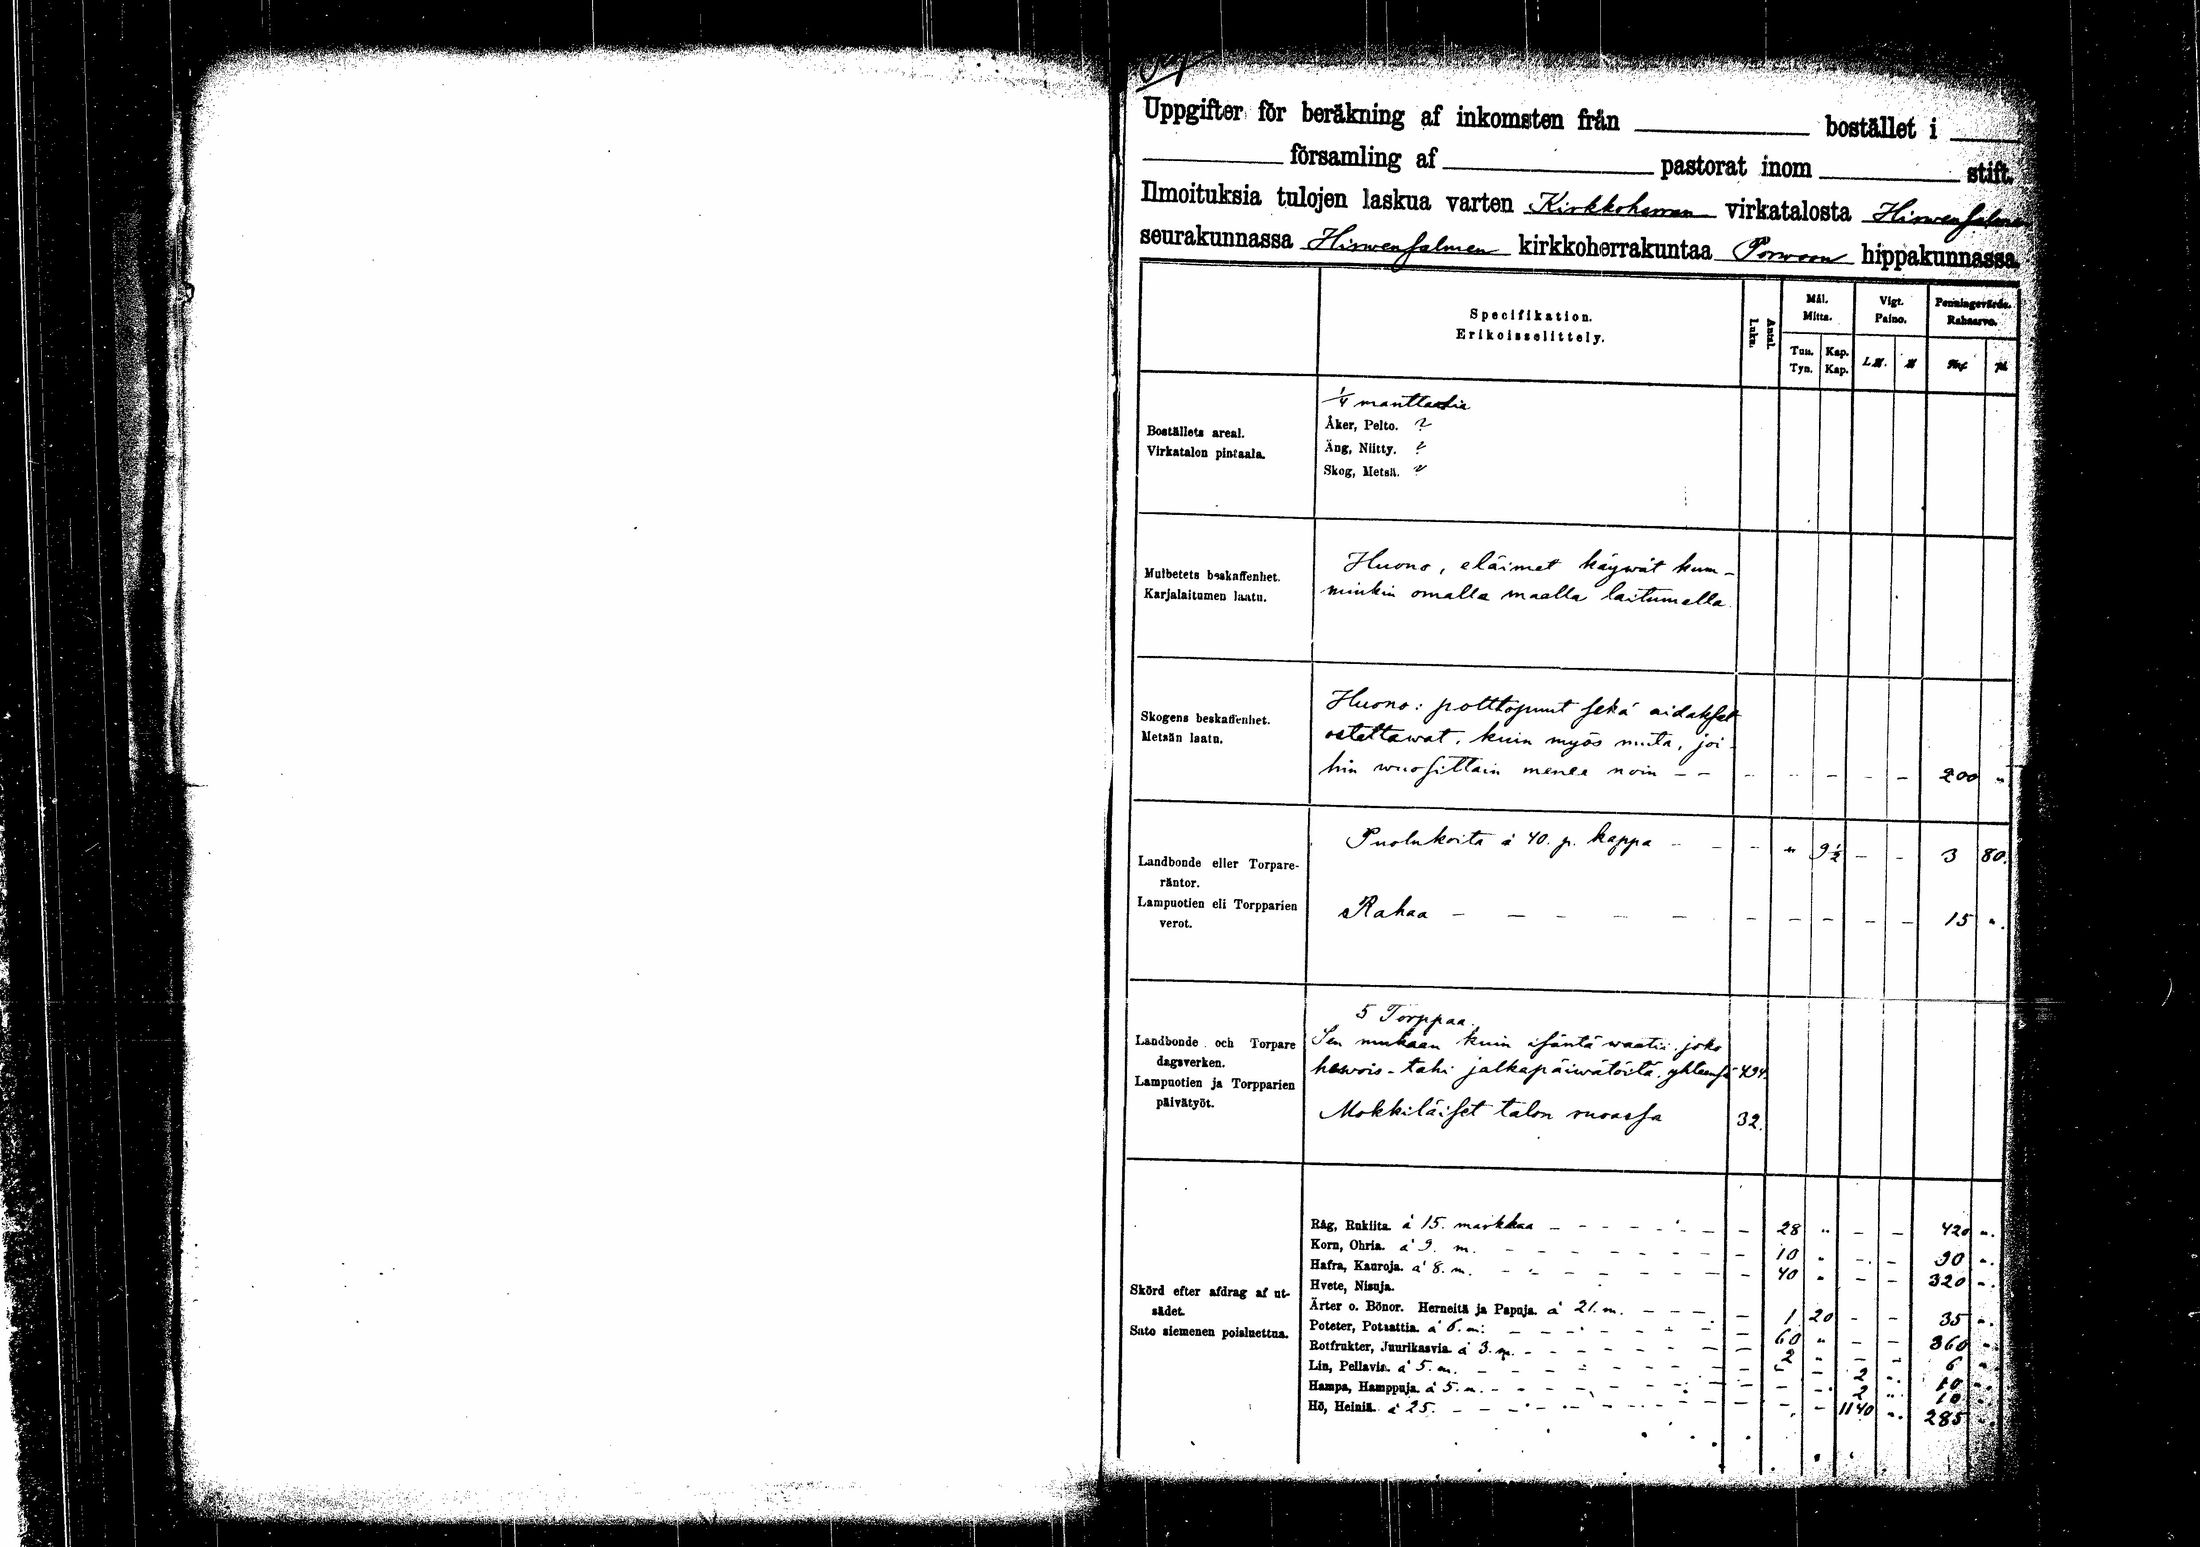 Uppgifter för beräkning af inkomsten från bostället i
församling af pastorat inom stift.
Ilmoituksia tulojen laskua varten Kirkkoherran virkatalosta Hirwensalmen
seurakunnassa Hirwensalmen kirkkoherrakuntaa Porwoon hippakunnassa.
Specifikation.
Erikoisselittely.
Antal.
Luku.
Mål.
Mitta.
Vigt.
Paino.
Penningevärde.
Rahaarvo.
Tun. Kap.
Tyn. Kap.
Boställets areal.
Virkatalon pintaala.
1/4 manttaalia
Åker, Pelto. ?
Äng, Niitty. ?
Skog, Metsä. ?
Mulbetets beskaffenhet.
Karjalaitumen laatu.
Huono, eläimet käywät kum-
minkin omalla maalla laitumella.
Skogens beskaffenhet.
Metsän laatu.
Huono: polttopuut sekä aidakset
ostettawat, kuin myös muita, joi-
hin wuosittain menee noin - - - - - - - 200 "
Landbonde eller Torpare-
räntor.
Lampuotien eli Torpparien
verot.
Puolukoita à 40. p. kappa - - - " 9½ - - 3 80.
Rahaa - - - - - - - - - - - 15 ".
Landbonde och Torpare
dagsverken.
Lampuotien ja Torpparien
päivätyöt.
5 Torppaa.
Sen mukaan kuin isäntä waatii, joko
hewois- tahi jalkapäiwätöitä, yhteensä 494.
Mökkiläiset talon ruoassa 32.
Skörd efter afdrag af ut-
sädet.
Sato siemenen poisluettua.
Råg, Rukiita. à 15. markkaa - - - - 28 " - - 420 ".
Korn, Ohria. à 9. m. - - - - 10 " - - 90 ".
Hafra, Kauroja. à 8. m. - - - - 40 " - - 320 ".
Hvete, Nisuja.
Ärter o. Bönor. Herneitä ja Papuja. à 21. m. - - - 1 20 - - 35 ".
Poteter, Potaattia. à 6. m. - - - - 60 " - - 360 ".
Rotfrukter, Juurikasvia. à 3. m. - - - - 2 " - - 6 ".
Lin, Pellavia. à 5. m. - - - - - - 2 " 10 ".
Hampa, Hamppuja. à 5. m. - - - - - - 2 " 10 ".
Hö, Heiniä. à 25. - - - - - - 1140 " 285 ".